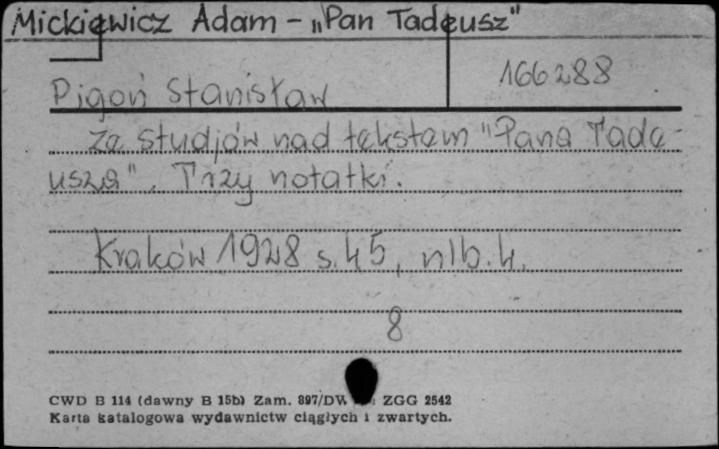 Mickiewicz Adam - „Pan Tadeusz"
166288
Pigoń Stanisław
Ze studjów nad tekstem "Pana Tade-
usza". Trzy notatki.
Kraków 1928 s. 45, nlb. 4.
8
CWD B 114 (dawny B 15b) Zam. 897/DW ZGG 2542
Karta katalogowa wydawnictw ciągłych i zwartych.